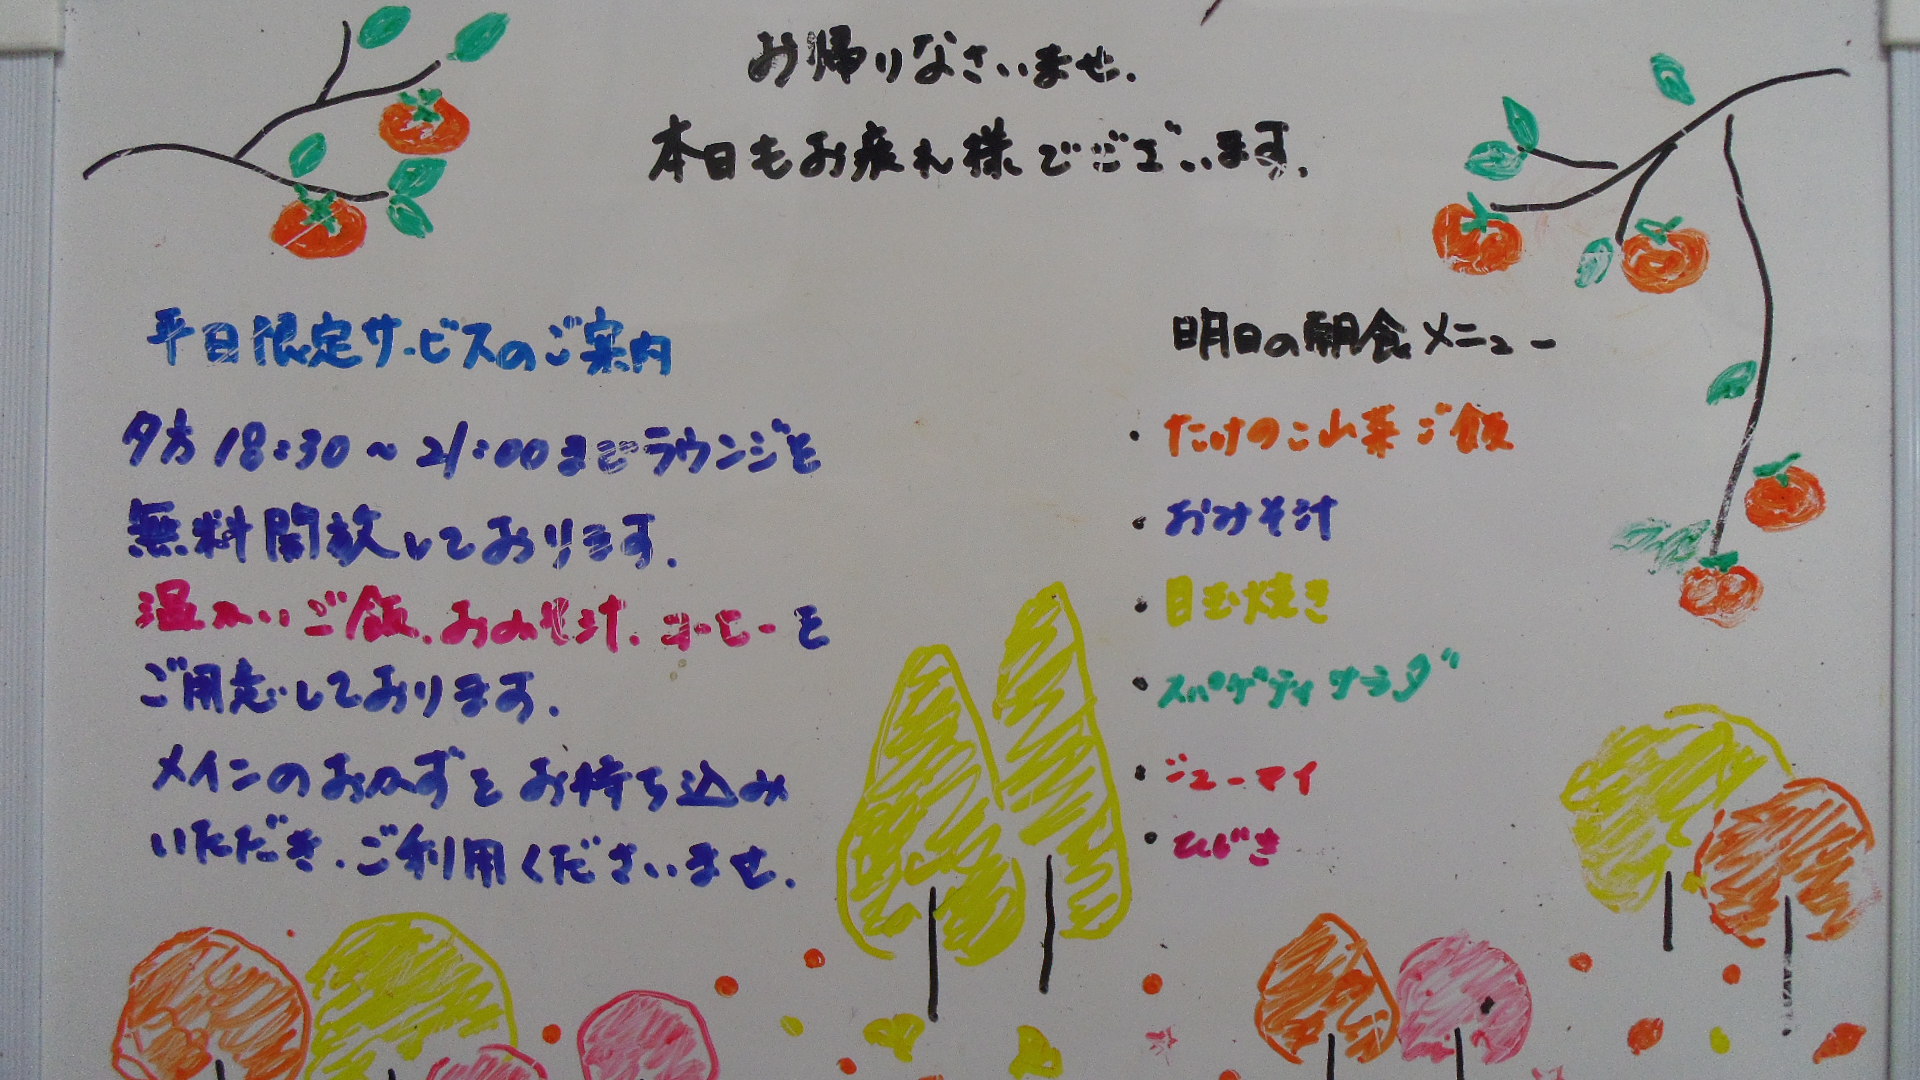 お帰りなさいませ.
本日もお疲れ様でございます.
平日限定サービスのご案内
夕方18:30～21:00までラウンジを
無料開放しております.
温かいご飯.おみそ汁.コーヒーを
ご用意しております.
メインのおかずをお持ち込み
いただき.ご利用くださいませ.
明日の朝食メニュー
・たけのこ山菜ご飯
・おみそ汁
・目玉焼き
・スパゲティサラダ
・シューマイ
・ひじき